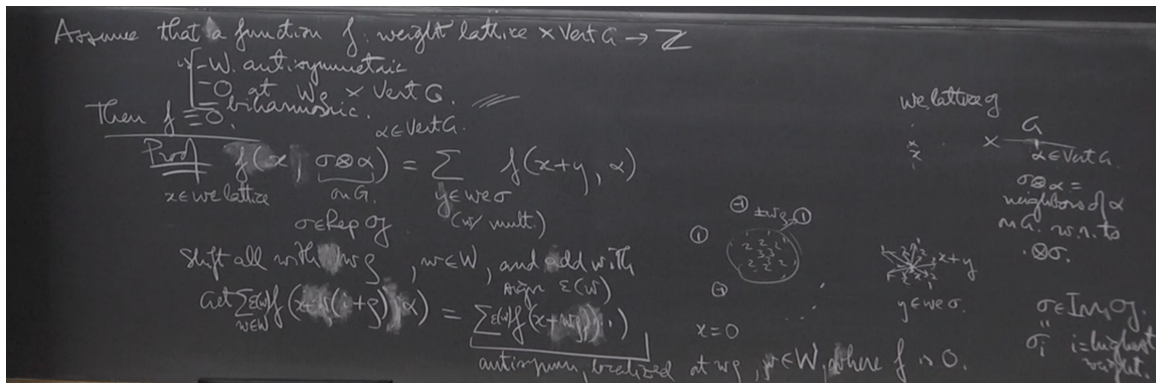 Assume that a function f: weight lattice × Vert G → ℤ
is - W. antisymmetric
- 0 at Wρ × Vert G.
- biharmonic.
Then f ≡ 0.
α ∈ Vert G.
Proof f(x, σ⊗α) = Σ f(x+y, α)
x ∈ we lattice
on G.
y ∈ we σ
σ ∈ Rep g
(w/ mult.)
Shift all with wρ, w ∈ W, and add with
sign ε(w)
Get Σ ε(w) f(x+w(i+ρ), α) = Σ ε(w) f(x+wρ, ·)
w∈W
antisymm, localized at wρ, w ∈ W, where f is 0.
-1 ±wρ 1
1
x = 0
we lattice g
× G
α ∈ Vert G.
σ⊗α =
neighbors of α
in G. w.r. to
·⊗σ.
x+y
y ∈ we σ.
σ ∈ Irr g.
σi i = highest
weight.